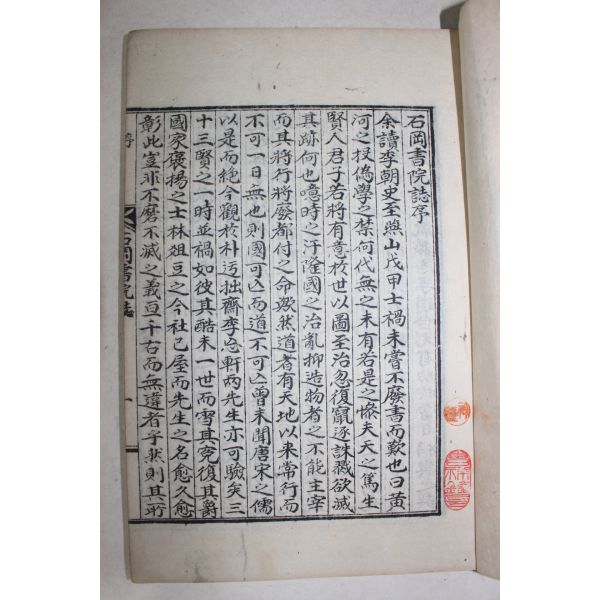 石岡書院誌序
余讀李朝史至燕山戊甲士禍未嘗不廢書而歎也曰黃
河之投偽學之禁何代無之未有若是之慘夫天之篤生
賢人君子若將有意於世以圖至治忽復竄逐誅戮欲滅
其跡何也噫時之汙隆國之治亂抑造物者之不能主宰
而其將行將廢都付之命歟然道者有天地以來常行而
不可一日無也則國可亡而道不可亡曾未聞唐宋之儒
以是而絕今觀於朴迃拙齋李忘軒兩先生亦可驗矣三
十三賢之一時並禍如彼其酷未一世而雪其冤復其爵
國家褒揚之士林俎豆之今社已屋而先生之名愈久愈
彰此豈非不磨不滅之義亘千古而無違者乎然則其所
石岡書院誌
一